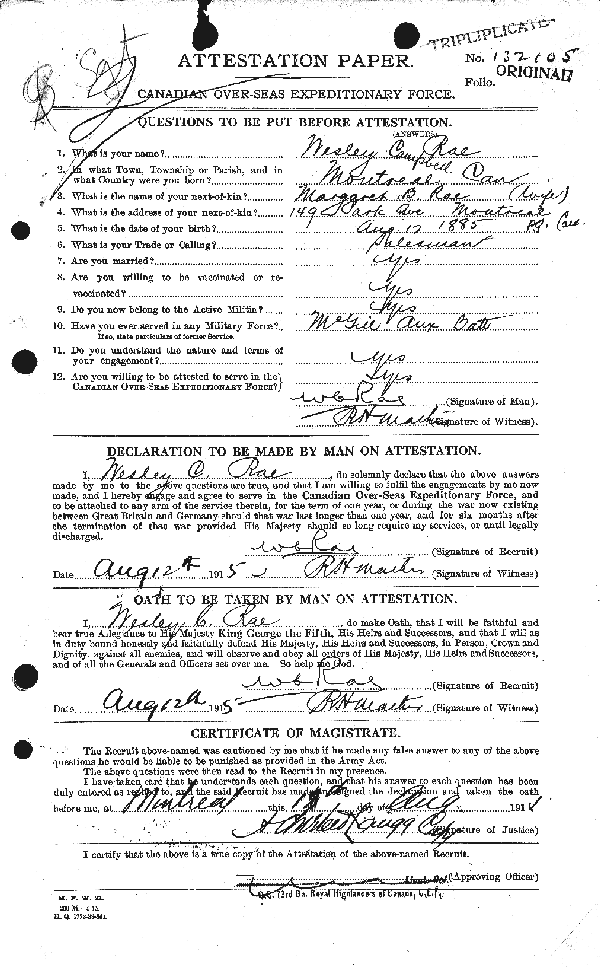 TRIPLIPLICATE
ATTESTATION PAPER.
No. 132105
ORIGINAL
Folio.
CANADIAN OVER-SEAS EXPEDITIONARY FORCE.
QUESTIONS TO BE PUT BEFORE ATTESTATION.
(ANSWERS)
1. What is your name? Wesley Campbell Rae
2. In what Town, Township or Parish, and in
what Country were you born? Montreal Can
3. What is the name of your next-of-kin? Margaret B. Rae (Wife)
4. What is the address of your next-of-kin? 149 Park Ave Montreal
5. What is the date of your birth? Aug 12 1885
6. What is your Trade or Calling? Salesman
7. Are you married? Yes
8. Are you willing to be vaccinated or re-
vaccinated? Yes
9. Do you now belong to the Active Militia? Yes
10. Have you ever served in any Military Force? McGill Aux Batt
If so, state particulars of former Service.
11. Do you understand the nature and terms of
your engagement? Yes
12. Are you willing to be attested to serve in the
CANADIAN OVER-SEAS EXPEDITIONARY FORCE? Yes
W C Rae (Signature of Man).
(Signature of Witness).
DECLARATION TO BE MADE BY MAN ON ATTESTATION.
I, Wesley C. Rae, do solemnly declare that the above answers
made by me to the above questions are true, and that I am willing to fulfil the engagements by me now
made, and I hereby engage and agree to serve in the Canadian Over-Seas Expeditionary Force, and
to be attached to any arm of the service therein, for the term of one year, or during the war now existing
between Great Britain and Germany should that war last longer than one year, and for six months after
the termination of that war provided His Majesty should so long require my services, or until legally
discharged.
W C Rae (Signature of Recruit)
Date Aug 12th 1915 (Signature of Witness)
OATH TO BE TAKEN BY MAN ON ATTESTATION.
I, Wesley C. Rae, do make Oath, that I will be faithful and
bear true Allegiance to His Majesty King George the Fifth, His Heirs and Successors, and that I will as
in duty bound honestly and faithfully defend His Majesty, His Heirs and Successors, in Person, Crown and
Dignity, against all enemies, and will observe and obey all orders of His Majesty, His Heirs and Successors,
and of all the Generals and Officers set over me. So help me God.
W C Rae (Signature of Recruit)
Date Aug 12th 1915 (Signature of Witness)
CERTIFICATE OF MAGISTRATE.
The Recruit above-named was cautioned by me that if he made any false answer to any of the above
questions he would be liable to be punished as provided in the Army Act.
The above questions were then read to the Recruit in my presence.
I have taken care that he understands each question, and that his answer to each question has been
duly entered as replied to, and the said Recruit has made and signed the declaration and taken the oath
before me, at Montreal this day of Aug 191
(Signature of Justice)
I certify that the above is a true copy of the Attestation of the above-named Recruit.
(Approving Officer)
O.C. 73rd Bn. Royal Highlanders of Canada, C.E.F.
M. F. W. 23.